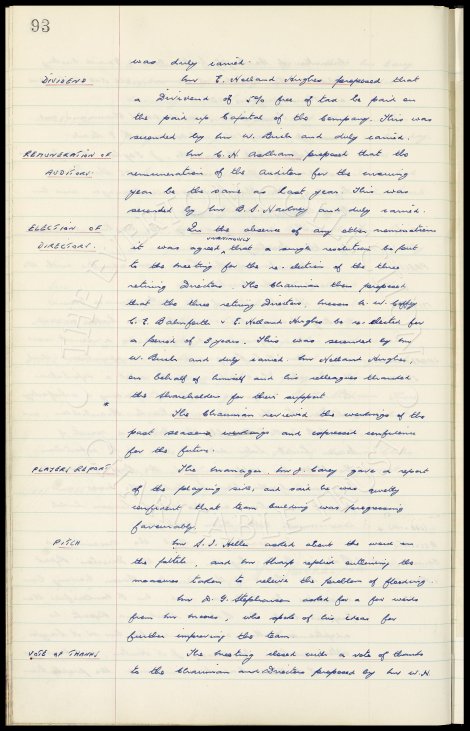 93
was duly carried.
DIVIDEND Mr E. Holland Hughes proposed that
a Dividend of 5% free of tax be paid on
the paid up Capital of the Company. This was
seconded by Mr W. and duly carried.
REMUNERATION OF Mr C. H. proposed that the
AUDITORS. remuneration of the Auditors for the ensuing
year be the same as last year. This was
seconded by Mr B. S. and duly carried.
ELECTION OF In the absence of any other nominations
DIRECTORS. it was agreed UNANIMOUSLY that a single resolution be put
to the meeting for the re-election of the three
retiring Directors. The Chairman then proposed
that the three retiring Directors, Messrs A. W.
C. E. Balmforth & E. Holland Hughes be re-elected for
a period of 3 years. This was seconded by Mr
W. and duly carried. Mr Holland Hughes,
on behalf of himself and his colleagues thanked
the shareholders for their support.
* The Chairman reviewed the workings of the
past season workings and expressed confidence
for the future.
PLAYERS REPORT The manager, Mr J. Carey gave a report
of the playing side, and said he was quietly
confident that team building was progressing
favourably.
PITCH Mr S. J. asked about the work on
the pitch, and Mr replied outlining the
measures taken to relieve the problem of flooding.
Mr D. G. Stephenson asked for a few words
from Mr who spoke of his ideas for
further improving the team.
VOTE OF THANKS The meeting closed with a vote of thanks
to the Chairman and Directors proposed by Mr W. H.